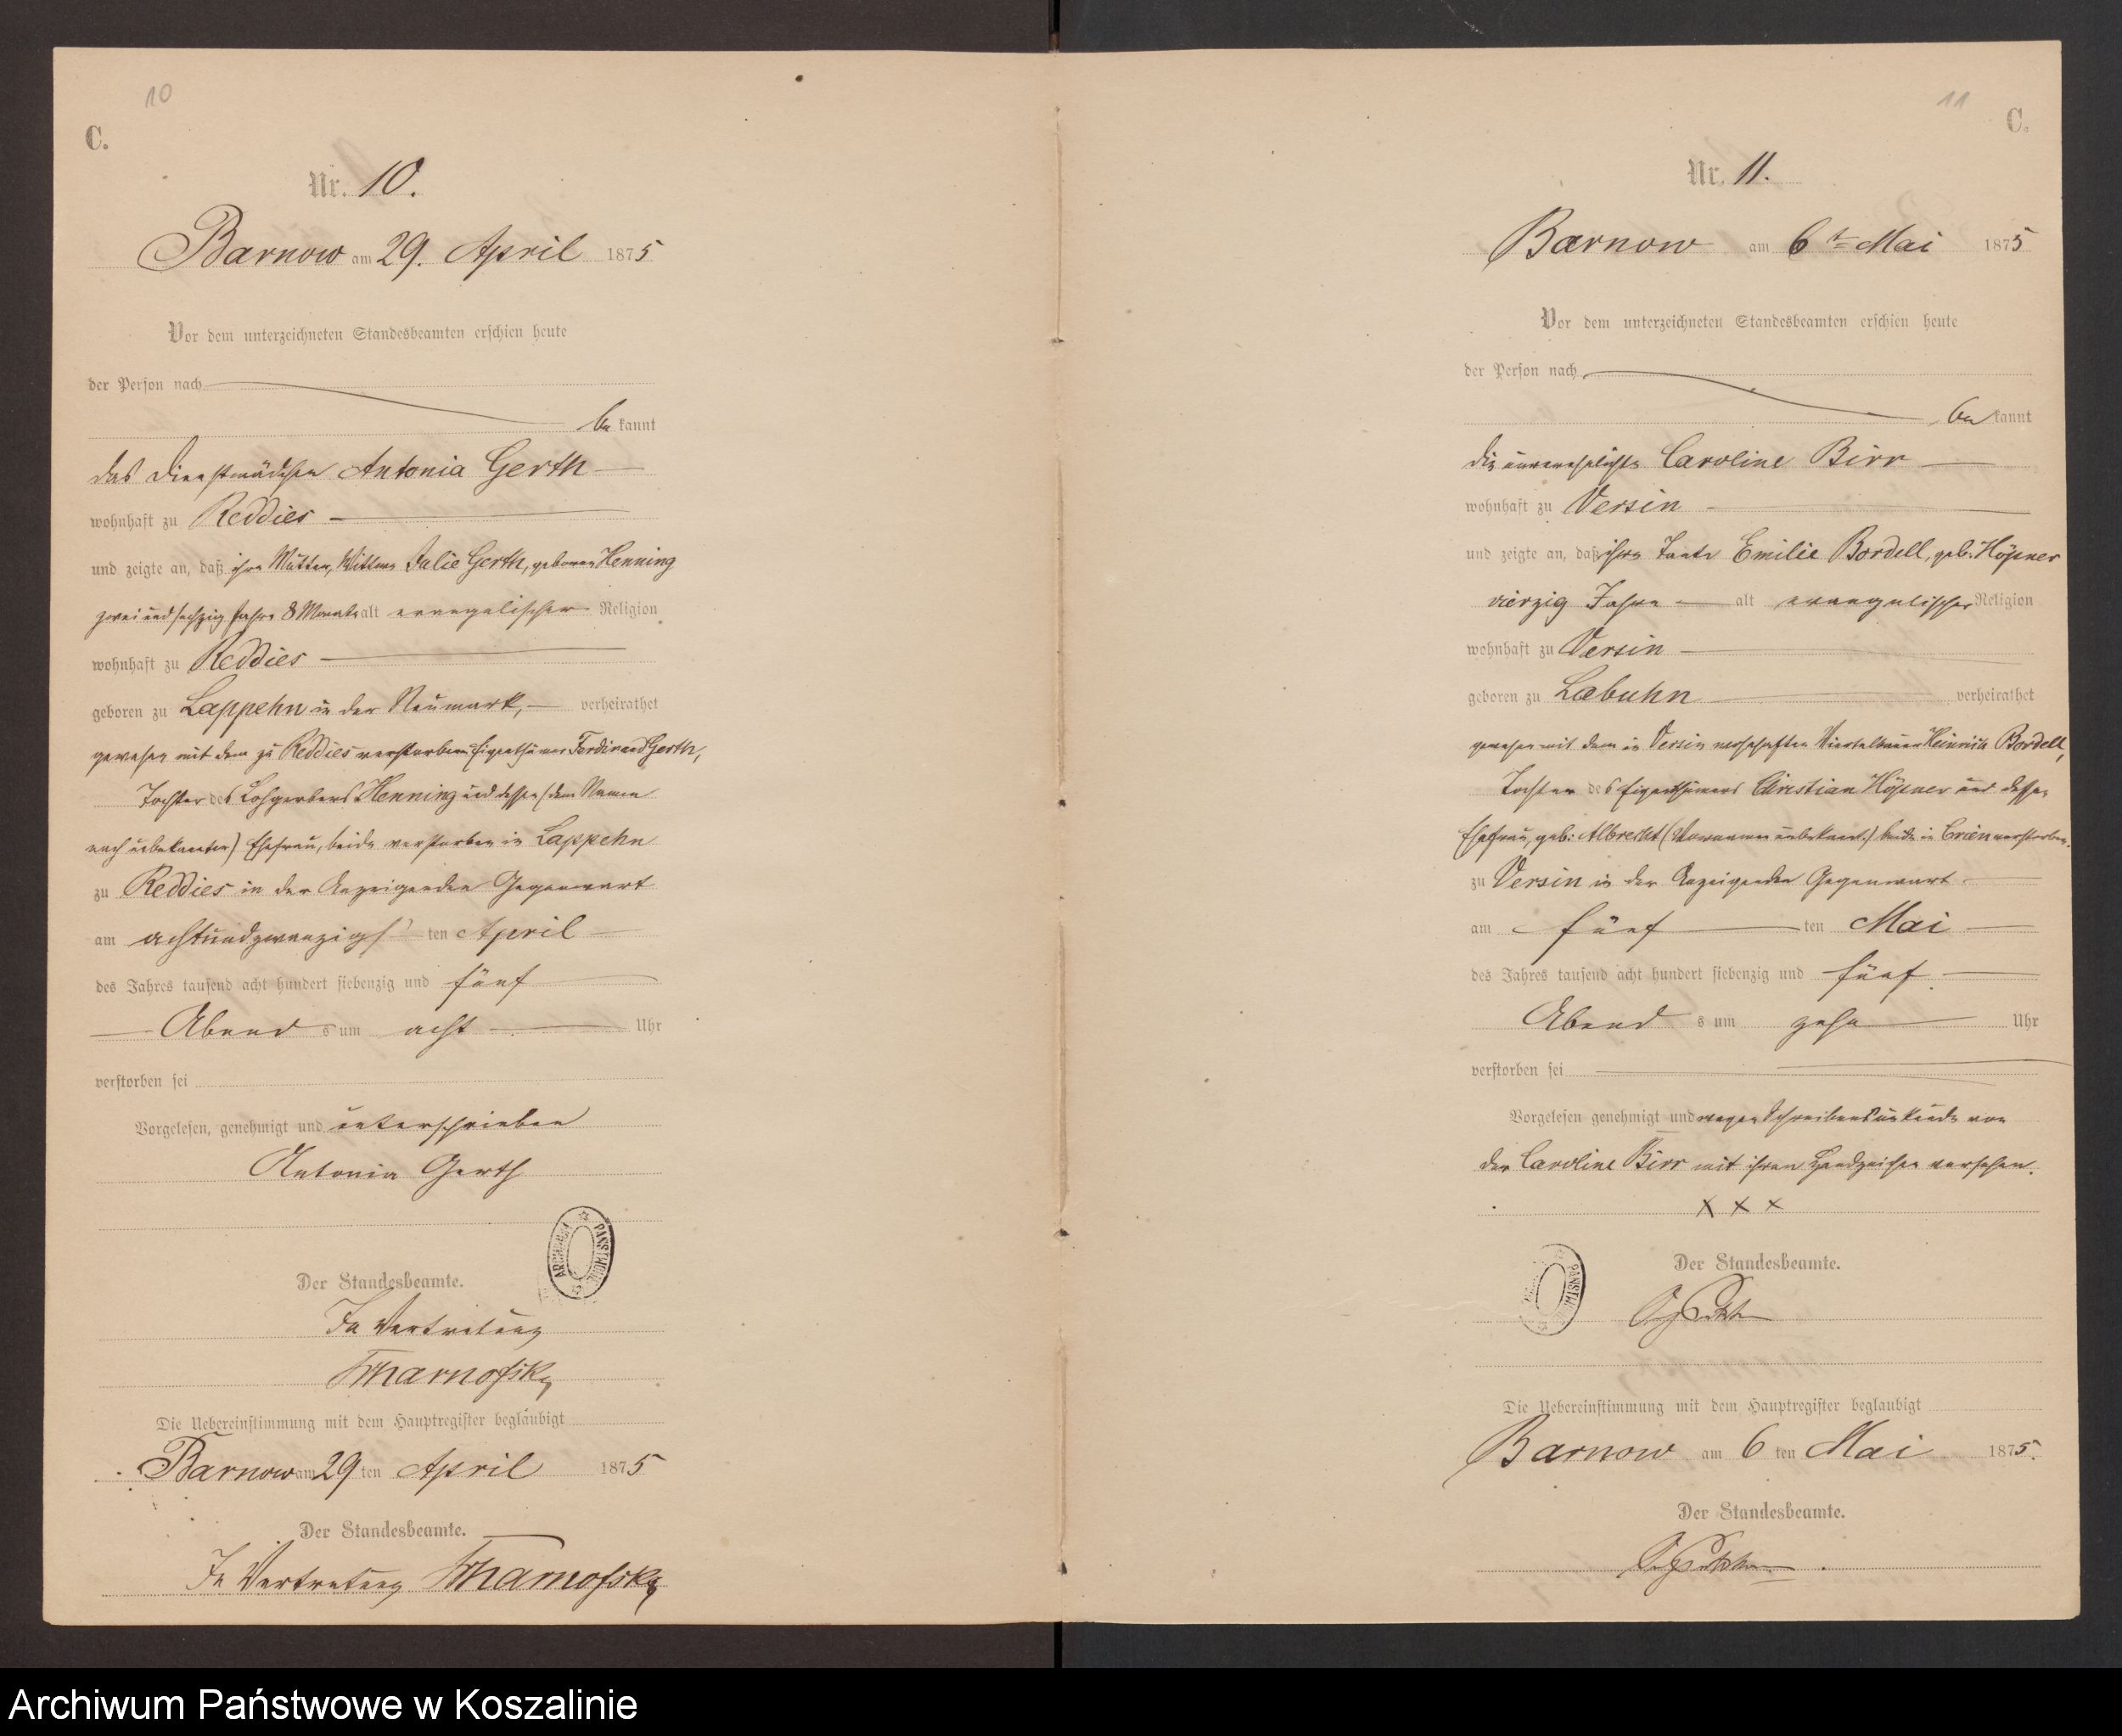 10
C.
Nr. 10.
Barnow am 29. April 1875
Vor dem unterzeichneten Standesbeamten erschien heute
der Person nach
be kannt
das Dienstmädchen Antonia Gerth
wohnhaft zu Reddies
und zeigte an, daß ihre Mutter, Wittwe Julie Gerth, geborne Henning
zwei und sechzig Jahre 8 Monate alt evangelischer Religion
wohnhaft zu Reddies
geboren zu Lappehn in der Neumark, verheirathet
gewesen mit dem zu Reddies verstorbenen Eigenthümer Ferdinand Gerth,
Tochter des Lohgerbers Henning und dessen (dem Namen
nach unbekannten) Ehefrau, beide verstorben in Lappehn
zu Reddies in der Anzeigenden Gegenwart
am achtundzwanzigs ten April
des Jahres tausend acht hundert siebenzig und fünf
Abend s um acht Uhr
verstorben sei
Vorgelesen, genehmigt und unterschrieben
Antonia Gerth
ARCHIWUM PAŃSTWOWE
Der Standesbeamte.
In Vertretung
Die Uebereinstimmung mit dem Hauptregister beglaubigt
Barnow am 29 ten April 1875
Der Standesbeamte.
In Vertretung
11
C.
Nr. 11.
Barnow am 6ten Mai 1875
Vor dem unterzeichneten Standesbeamten erschien heute
der Person nach
be kannt
die unverehelichte Caroline Birr
wohnhaft zu Versin
und zeigte an, daß ihre Tante Emilie Bordell, geb. Höpner
vierzig Jahre alt evangelischer Religion
wohnhaft zu Versin
geboren zu Labuhn verheirathet
gewesen mit dem in Versin wohnhaften Viertelbauer Heinrich Bordell,
Tochter des Eigenthümers Christian Höpner und dessen
Ehefrau, geb: Albrecht (Vorname unbekannt.) beide in Crien verstorben.
zu Versin in der Anzeigenden Gegenwart
am fünf ten Mai
des Jahres tausend acht hundert siebenzig und fünf
Abend s um zehn Uhr
verstorben sei
Vorgelesen genehmigt und wegen Schreibensunkunde von
der Caroline Birr mit ihren Handzeichen versehen.
x x x
Der Standesbeamte.
Die Uebereinstimmung mit dem Hauptregister beglaubigt
Barnow am 6 ten Mai 1875.
Der Standesbeamte.
Archiwum Państwowe w Koszalinie